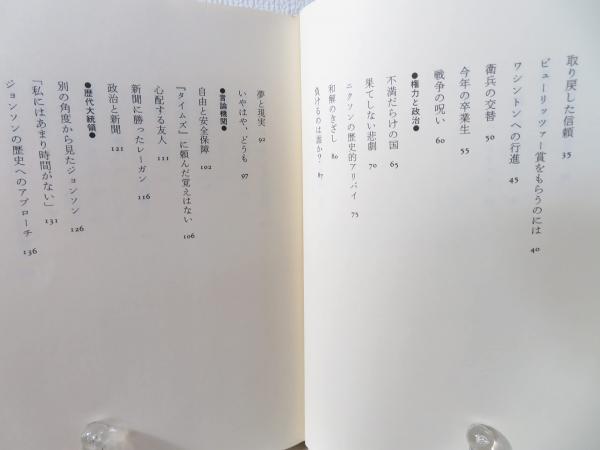 取り戻した信頼 35
ピューリッツァー賞をもらうのには 40
ワシントンへの行進 45
衛兵の交替 50
今年の卒業生 55
戦争の呪い 60
●権力と政治●
不満だらけの国 65
果てしない悲劇 70
ニクソンの歴史的アリバイ 75
和解のきざし 80
負けるのは誰か? 87
夢と現実 92
いやはや、どうも 97
●言論機関●
自由と安全保障 102
『タイムズ』に頼んだ覚えはない 106
心配する友人 111
新聞に勝ったレーガン 116
政治と新聞 121
●歴代大統領●
別の角度から見たジョンソン 126
「私にはあまり時間がない」 131
ジョンソンの歴史へのアプローチ 136